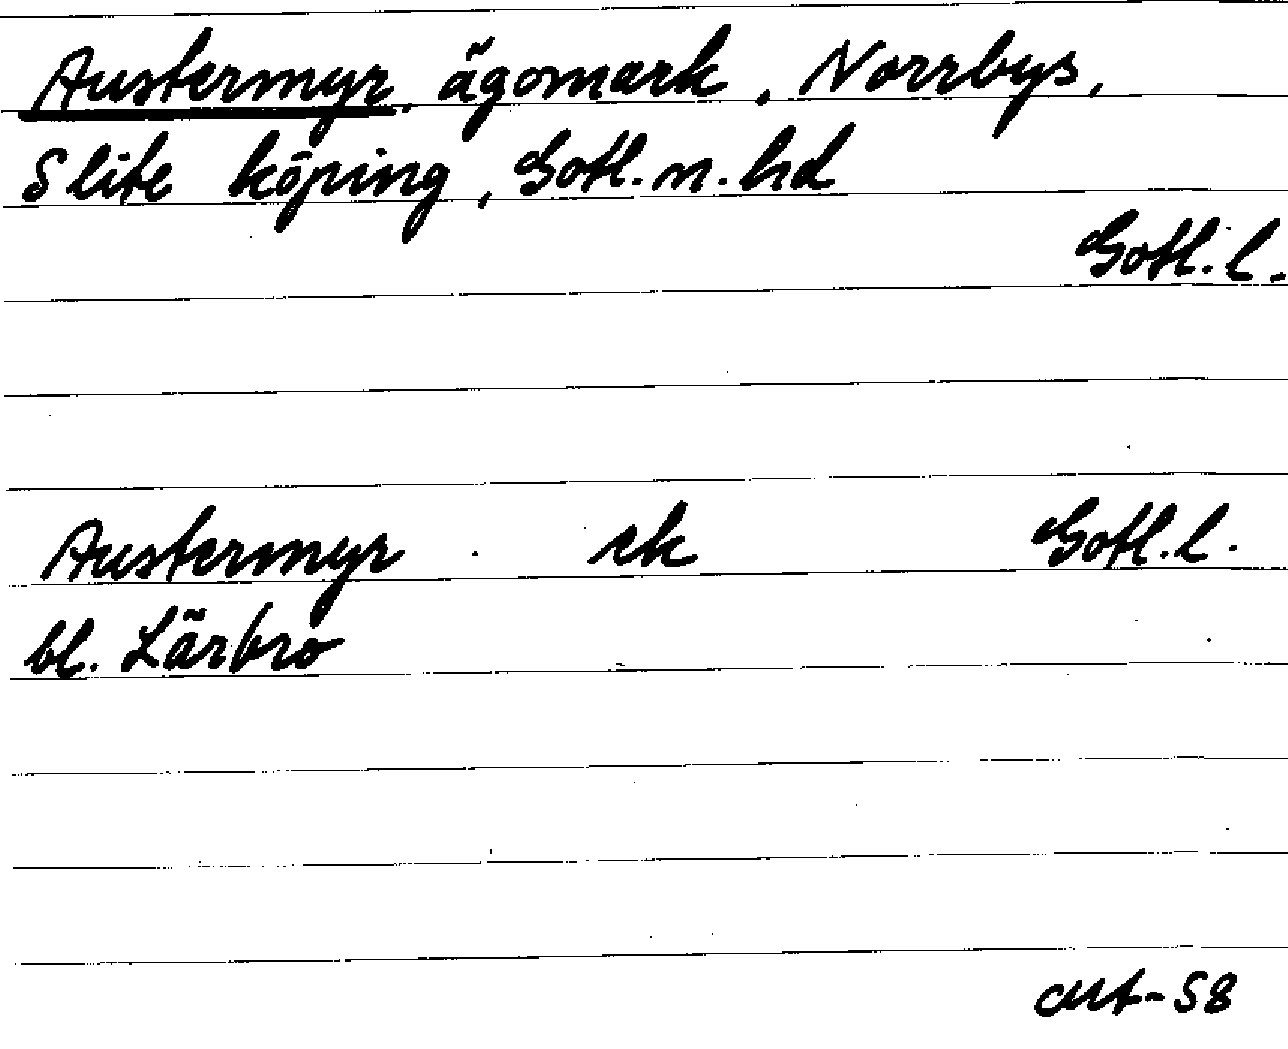 Austermyr, ägomark, Norrbys,
Slite köping, Gotl. n. hd
Gotl. l.
Austermyr ek Gotl. l.
bl. Lärbro
-58